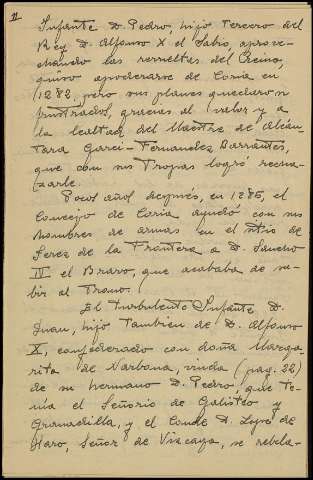 11
Infante D. Pedro, hijo tercero del
Rey D. Alfonso X el Sabio, aprove-
chando las revueltas del Reino,
quiso apoderarse de Coria en
1282, pero sus planes quedaron
frustrados, gracias al valor y a
la lealtad del Maestre de Alcán-
tara Garci-Fernandez Barrantes,
que con sus Tropas logró recha-
zarle.
Pocos años después, en 1285, el
Concejo de Coria ayudó con sus
hombres de armas en el sitio de
Jerez de la Frontera a D. Sancho
IV el Bravo, que acababa de su-
bir al Trono.
El turbulento Infante D.
Juan, hijo Tambien de D. Alfonso
X, confederado con doña Marga-
rita de Narbona, viuda (pag. 22)
de su hermano D. Pedro, que te-
nía el Señorio de Galisteo y
Granadilla, y el Conde D. Lope de
Haro, Señor de Vizcaya, se rebela-